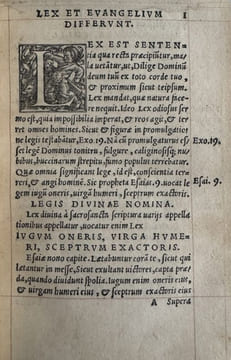 LEX ET EVANGELIVM 1
DIFFERVNT.
LEX EST SENTEN
tia qua recta præcipiūtur, ma
la uetātur, ut, Dilige Dominū
deum tuū ex toto corde tuo,
& proximum sicut teipsum.
Lex mandat, quæ natura facere
nequit. Ideo Lex odiosus ser
mo est, quia impoßibilia imperat, & reos agit, & ter
ret omnes homines. Sicut & figura in promulgatio
ne legis testabātur, Exo.19. Nā cū promulgaturus es Exo.19.
set legē Dominus tonitru, fulgure, caligine, nu
bibus, buccinarum strepitu, fumo populus terrebatur.
Quæ omnia significant lege, id est, conscientia terre
ri, & angi homines. Sic propheta Esaias 9. uocat le Esai. 9.
gem iugū oneris, uirgā humeri, sceptrum exactoris.
LEGIS DIVINAE NOMINA.
Lex diuina à sacrosancta scriptura uarijs appella
tionibus appellatur, uocatur enim Lex
IVGVM ONERIS, VIRGA HVME/
RI, SCEPTRVM EXACTORIS.
Esaiæ nono capite. Lætabuntur corā te, sicut qui
lætantur in messe, Sicut exultant uictores, capta præ
da, quando diuidunt spolia. Iugum enim oneris eius,
& uirgam humeri eius, & sceptrum exactoris eius
A Supera